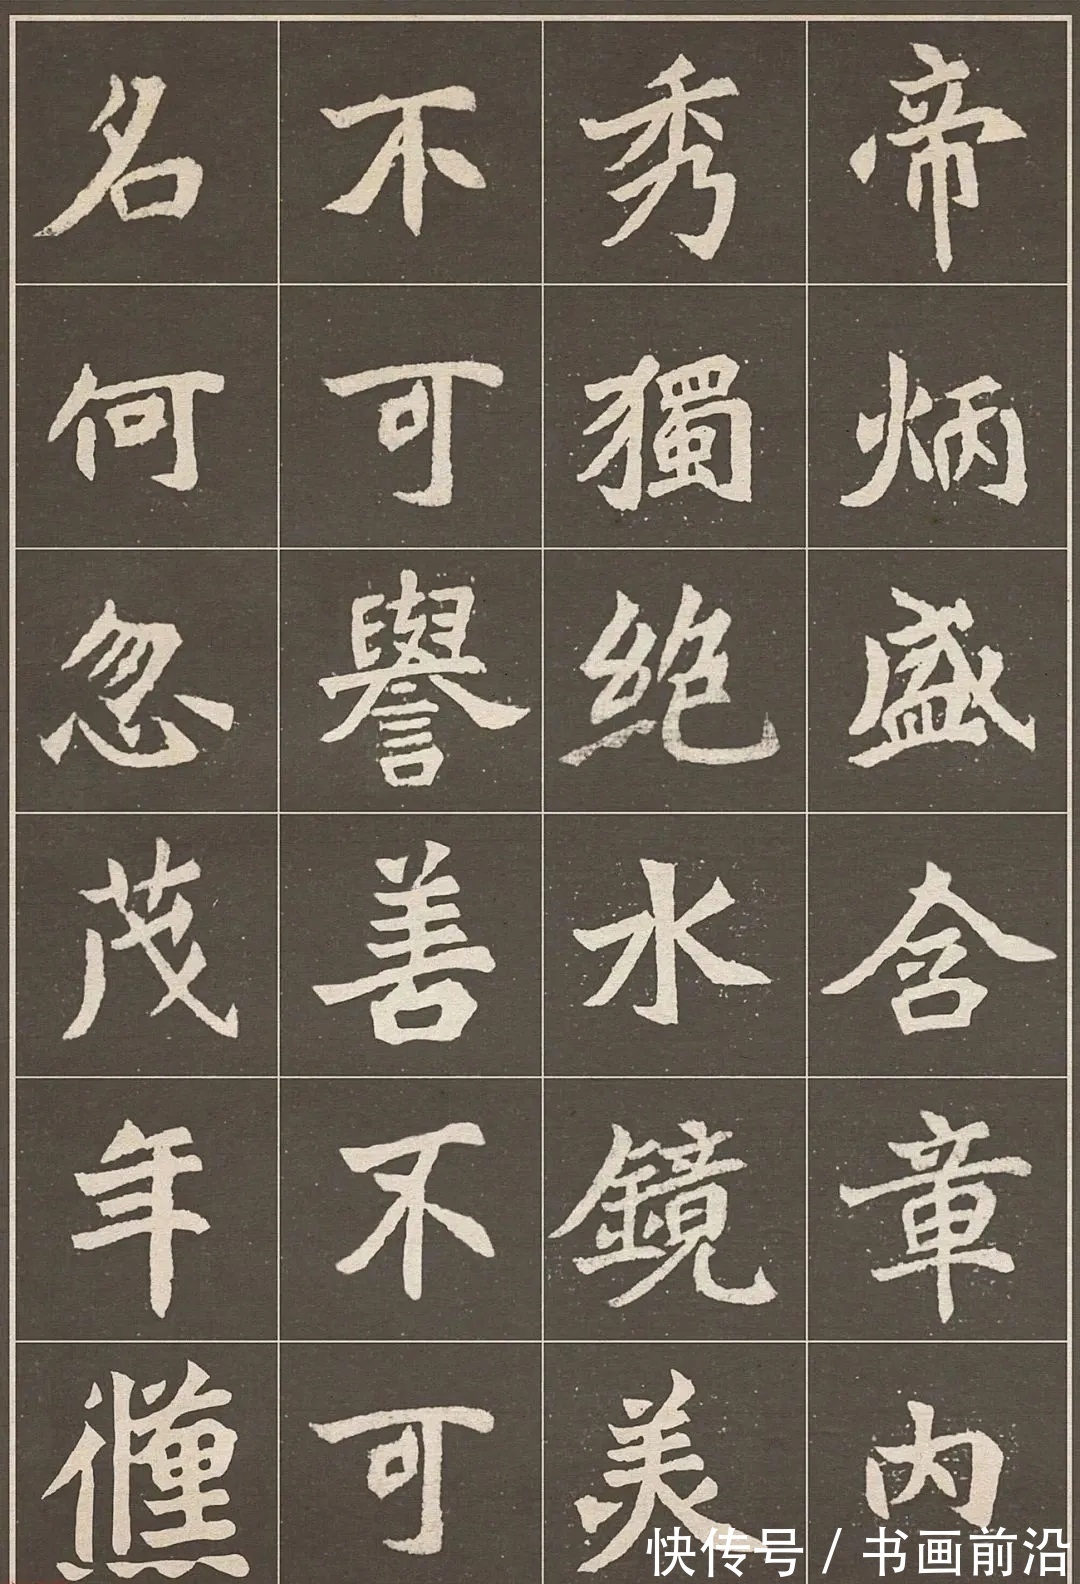 帝炳盛含章内
秀獨绝水鏡美
不可譽善不可
名何忽茂年
快传号 / 书画前沿